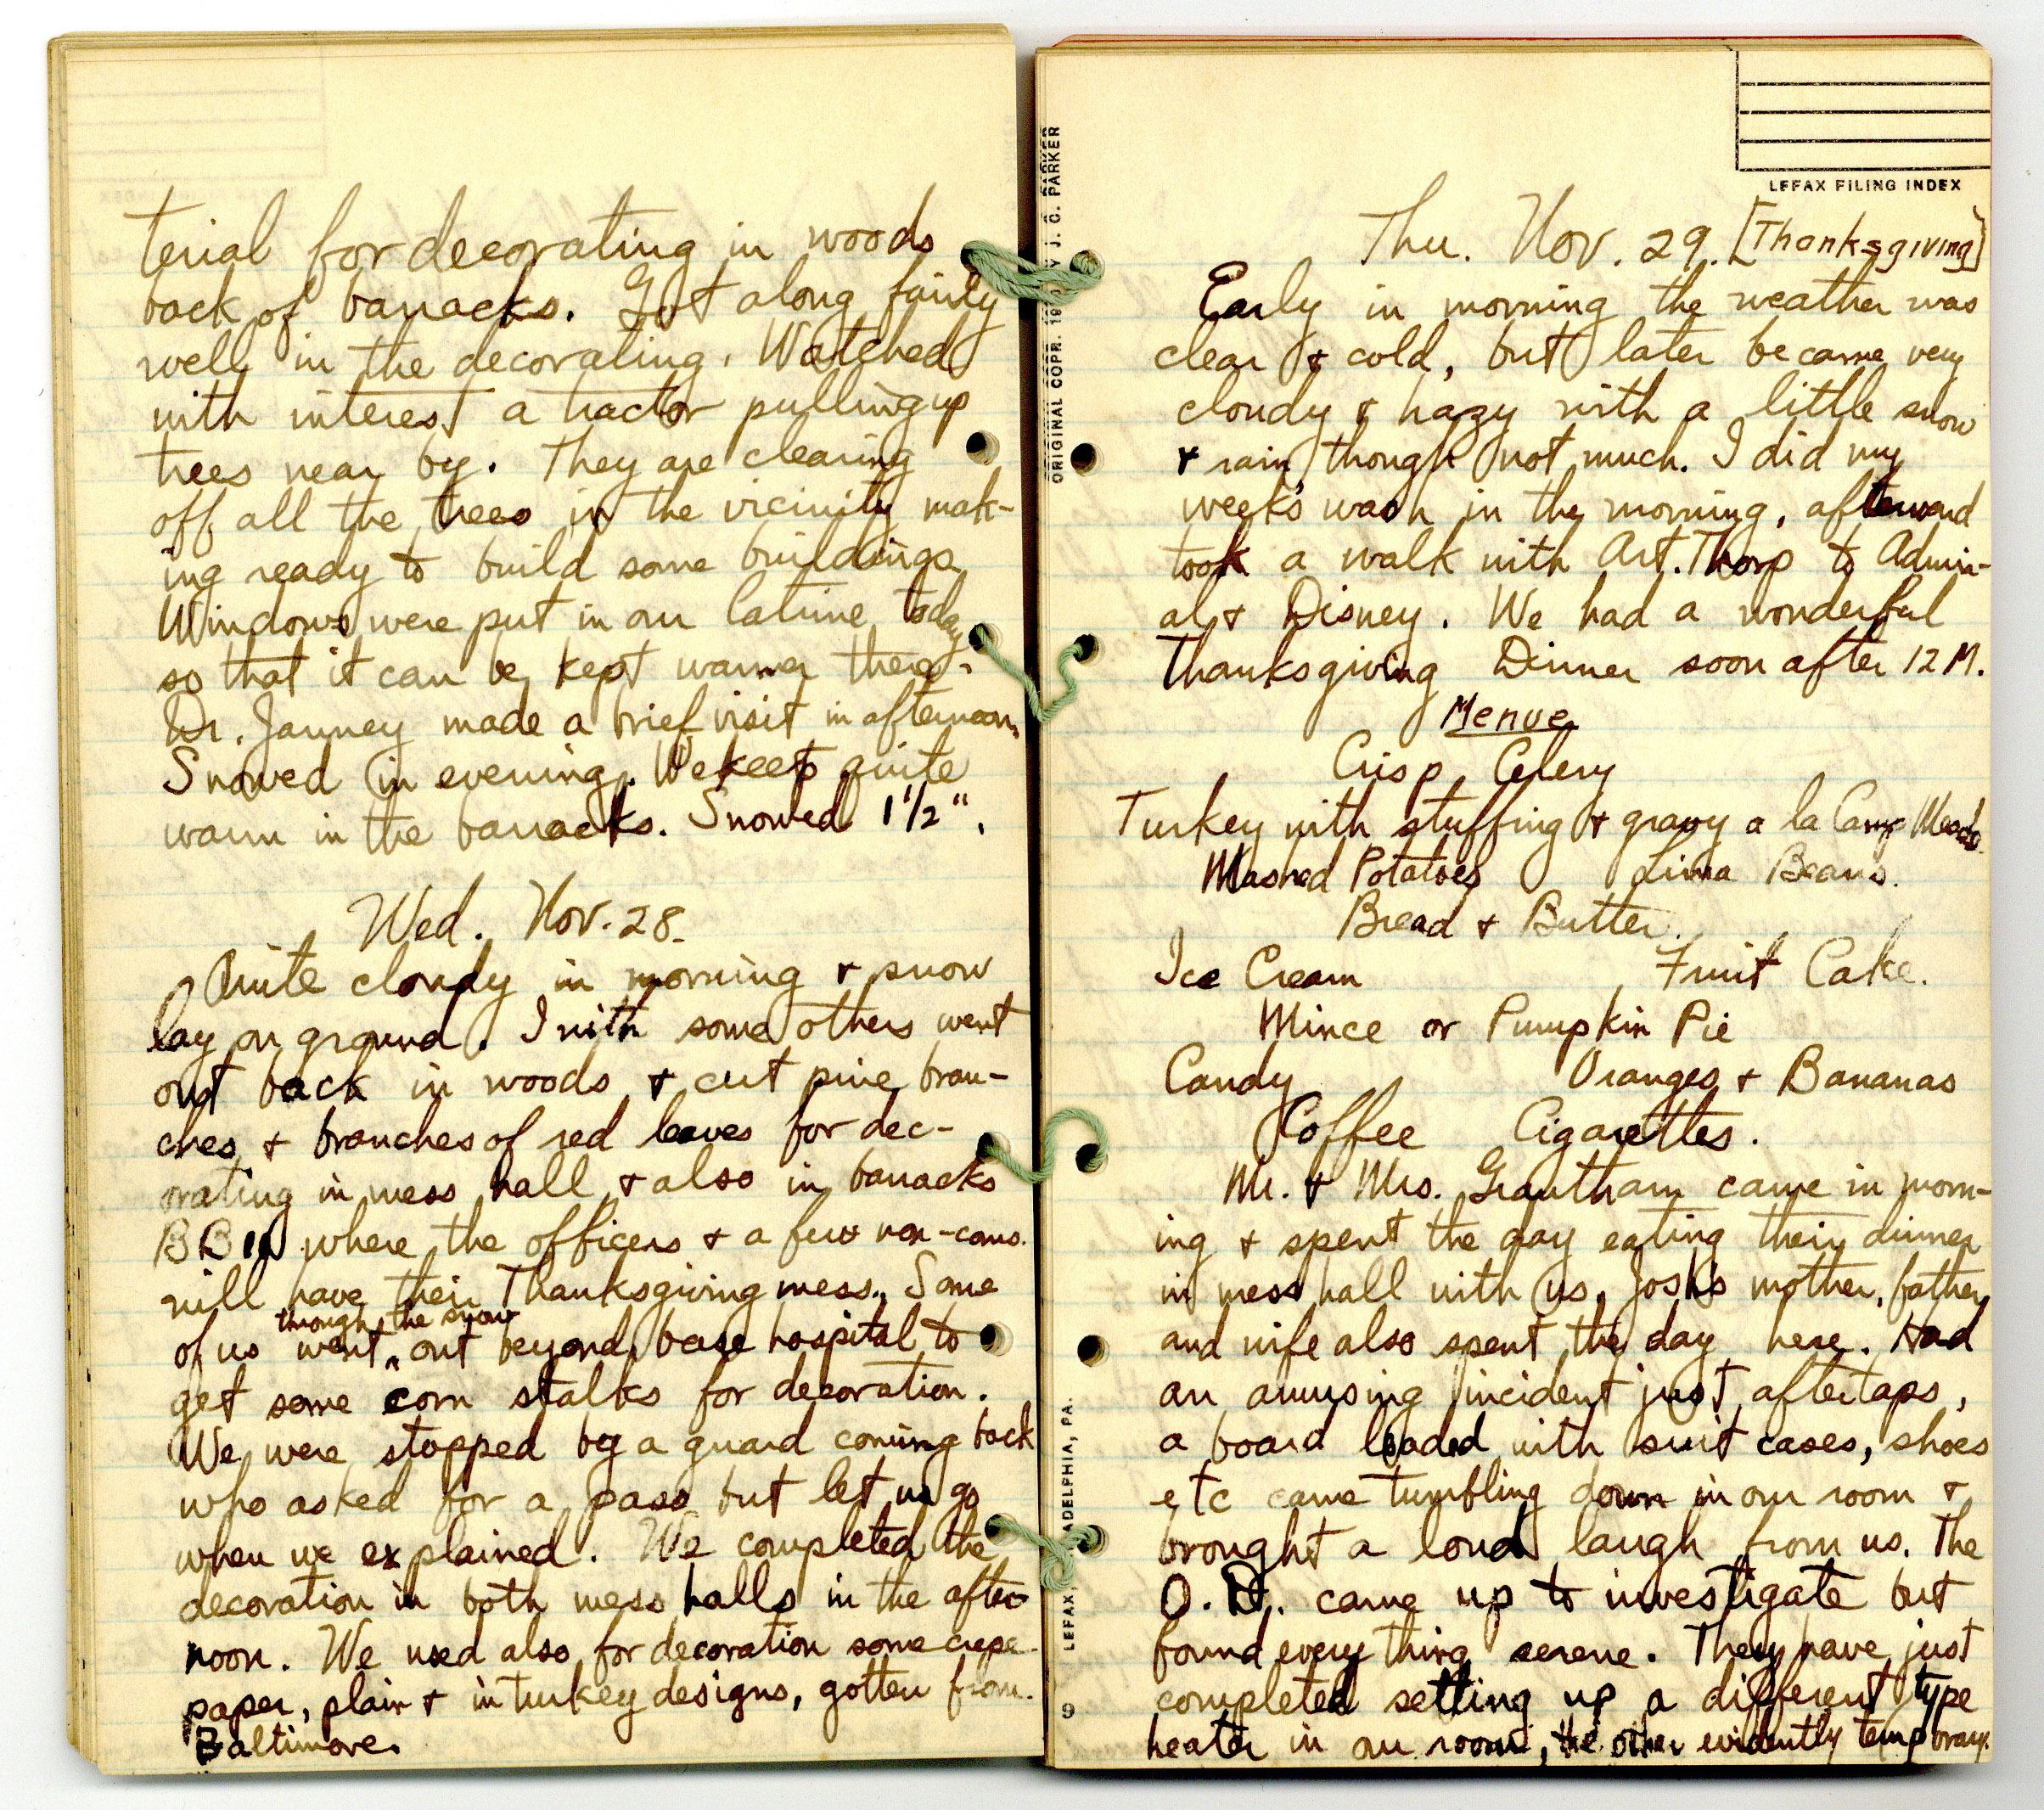 terial for decorating in woods
back of barracks. Got along fairly
well in the decorating. Watched
with interest a tractor pulling up
trees near by. They are clearing
off all the trees in the vicinity mak-
ing ready to build some buildings
Windows were put in our latrine today
so that it can be kept warmer there.
Dr. Janney made a brief visit in afternoon.
Snowed in evening. We keep quite
warm in the barracks. Snowed 1 1/2".
Wed. Nov. 28.
Quite cloudy in morning & snow
lay on ground. I with some others went
out back in woods & cut pine bran-
ches & branches of red leaves for dec-
orating in mess hall & also in barracks
where the officers & a few non-coms.
will have their Thanksgiving mess. Some
through the snow
of us went ^ out beyond base hospital to
get some corn stalks for decoration.
We were stopped by a guard coming back
who asked for a pass but let us go
when we explained. We completed the
decoration in both mess halls in the after
noon. We used also for decoration some crepe
paper, plain & in turkey designs, gotten from
Baltimore.
LEFAX FILING INDEX
Thu. Nov. 29. [Thanksgiving]
Early in morning the weather was
clear & cold, but later became very
cloudy & hazy with a little snow
& rain though not much. I did my
week's wash in the morning, afterward
took a walk with Art. Thorp to Admir-
al & Disney. We had a wonderful
Thanksgiving Dinner soon after 12 M.
Menue
Crisp Celery
Turkey with stuffing & gravy a la Camp Meade.
Mashed Potatoes Lima Beans.
Bread & Butter.
Ice Cream Fruit Cake.
Mince or Pumpkin Pie
Candy Oranges & Bananas
Coffee Cigarettes.
Mr. & Mrs. Grantham came in morn-
ing & spent the day eating their dinner
in mess hall with us. Josh's mother, father
and wife also spent the day here. Had
an amusing incident just after taps,
a board loaded with suit cases, shoes
etc came tumbling down in our room &
brought a loud laugh from us. The
O.D. came up to investigate but
found every thing serene. They have just
completed setting up a different type
heater in our room, the other evidently temporary.
ORIGINAL COPR. 19 BY J. C. PARKER
LEFAX, ADELPHIA, PA.
9